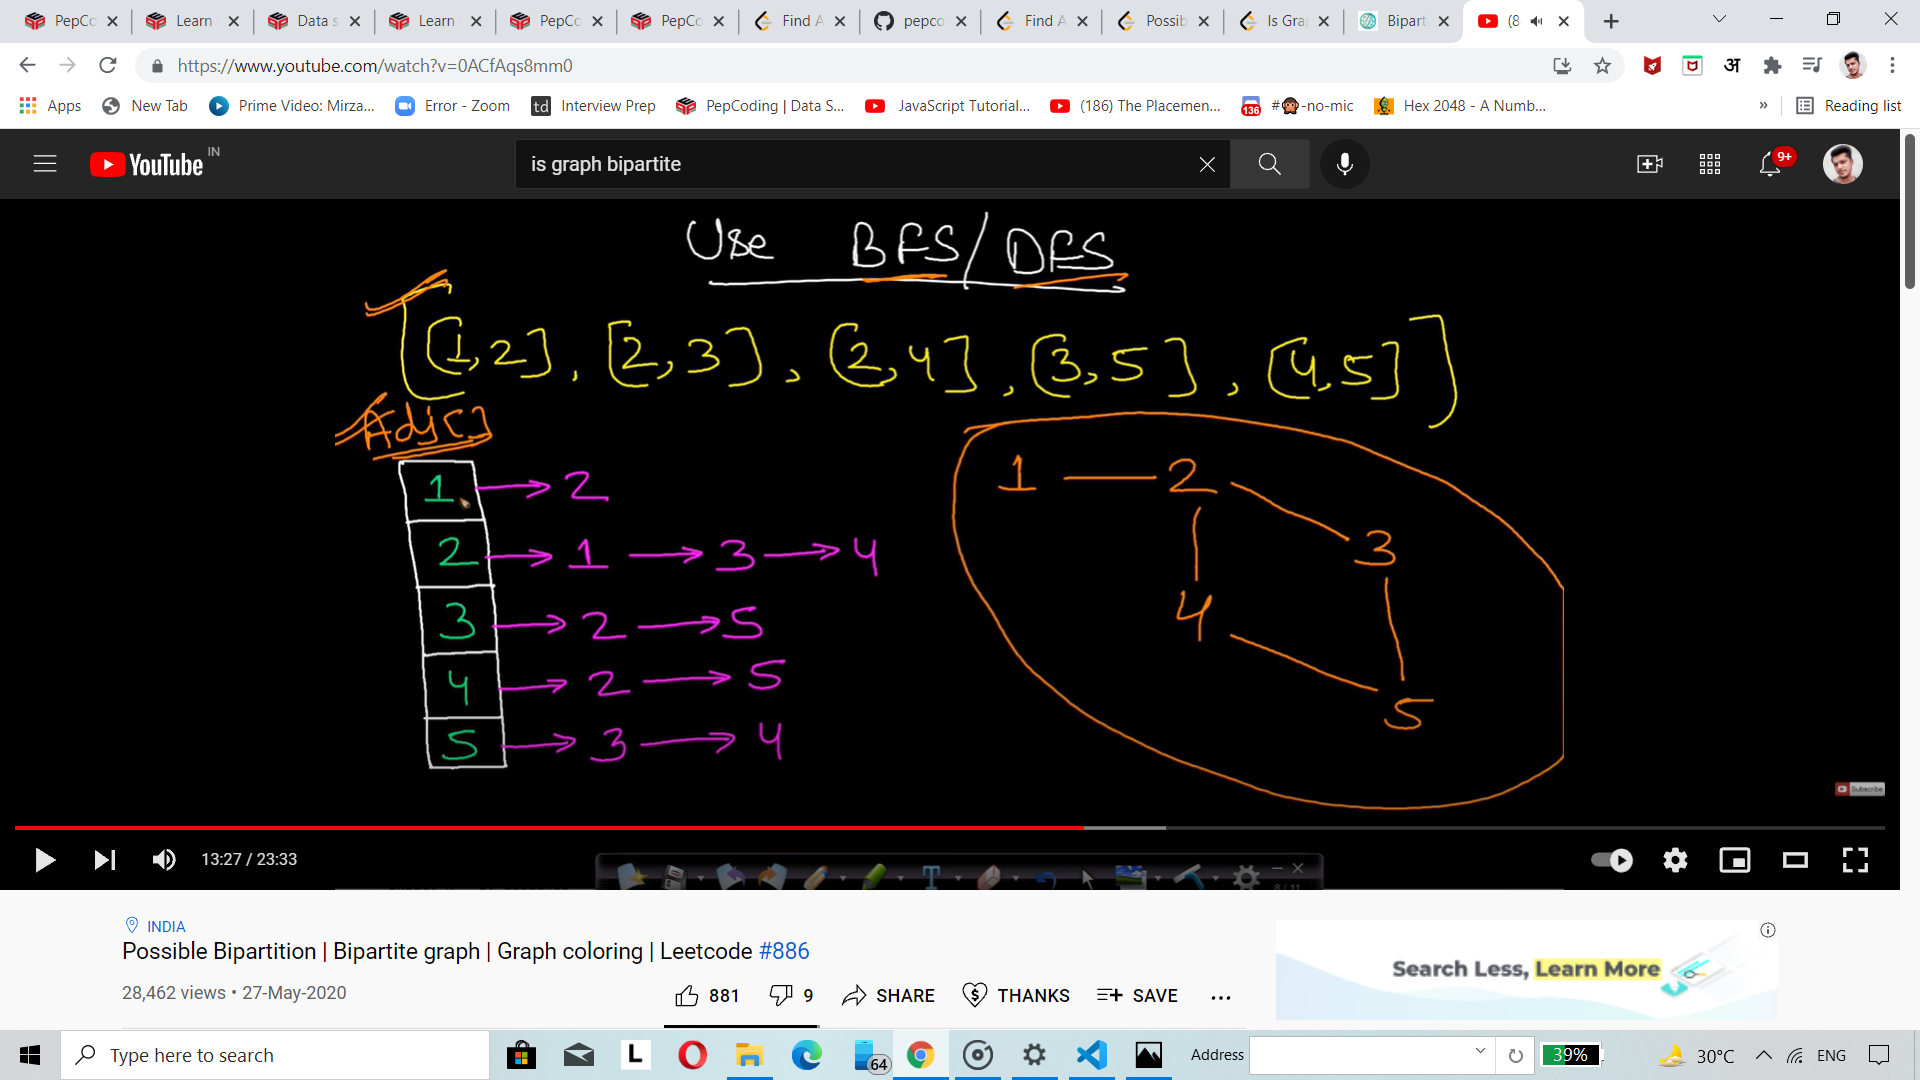 PepCo Learn Data s Learn PepCo PepCo Find A pepco Find A Possib Is Gra Bipart (8
https://www.youtube.com/watch?v=0ACfAqs8mm0
Apps New Tab Prime Video: Mirza... Error - Zoom td Interview Prep PepCoding | Data S... JavaScript Tutorial... (186) The Placemen... 136 #🙊-no-mic Hex 2048 - A Numb... » Reading list
YouTube IN is graph bipartite 9+
Use BFS/DFS
[[1,2], [2,3], [2,4], [3,5], [4,5]]
Adj[]
1 → 2
2 → 1 → 3 → 4
3 → 2 → 5
4 → 2 → 5
5 → 3 → 4
1 2
3
4
5
Subscribe
13:27 / 23:33
8 / 11
INDIA
Possible Bipartition | Bipartite graph | Graph coloring | Leetcode #886
28,462 views • 27-May-2020
881 9 SHARE THANKS SAVE ...
Search Less, Learn More
Type here to search L 64 Address 39% 30°C ENG